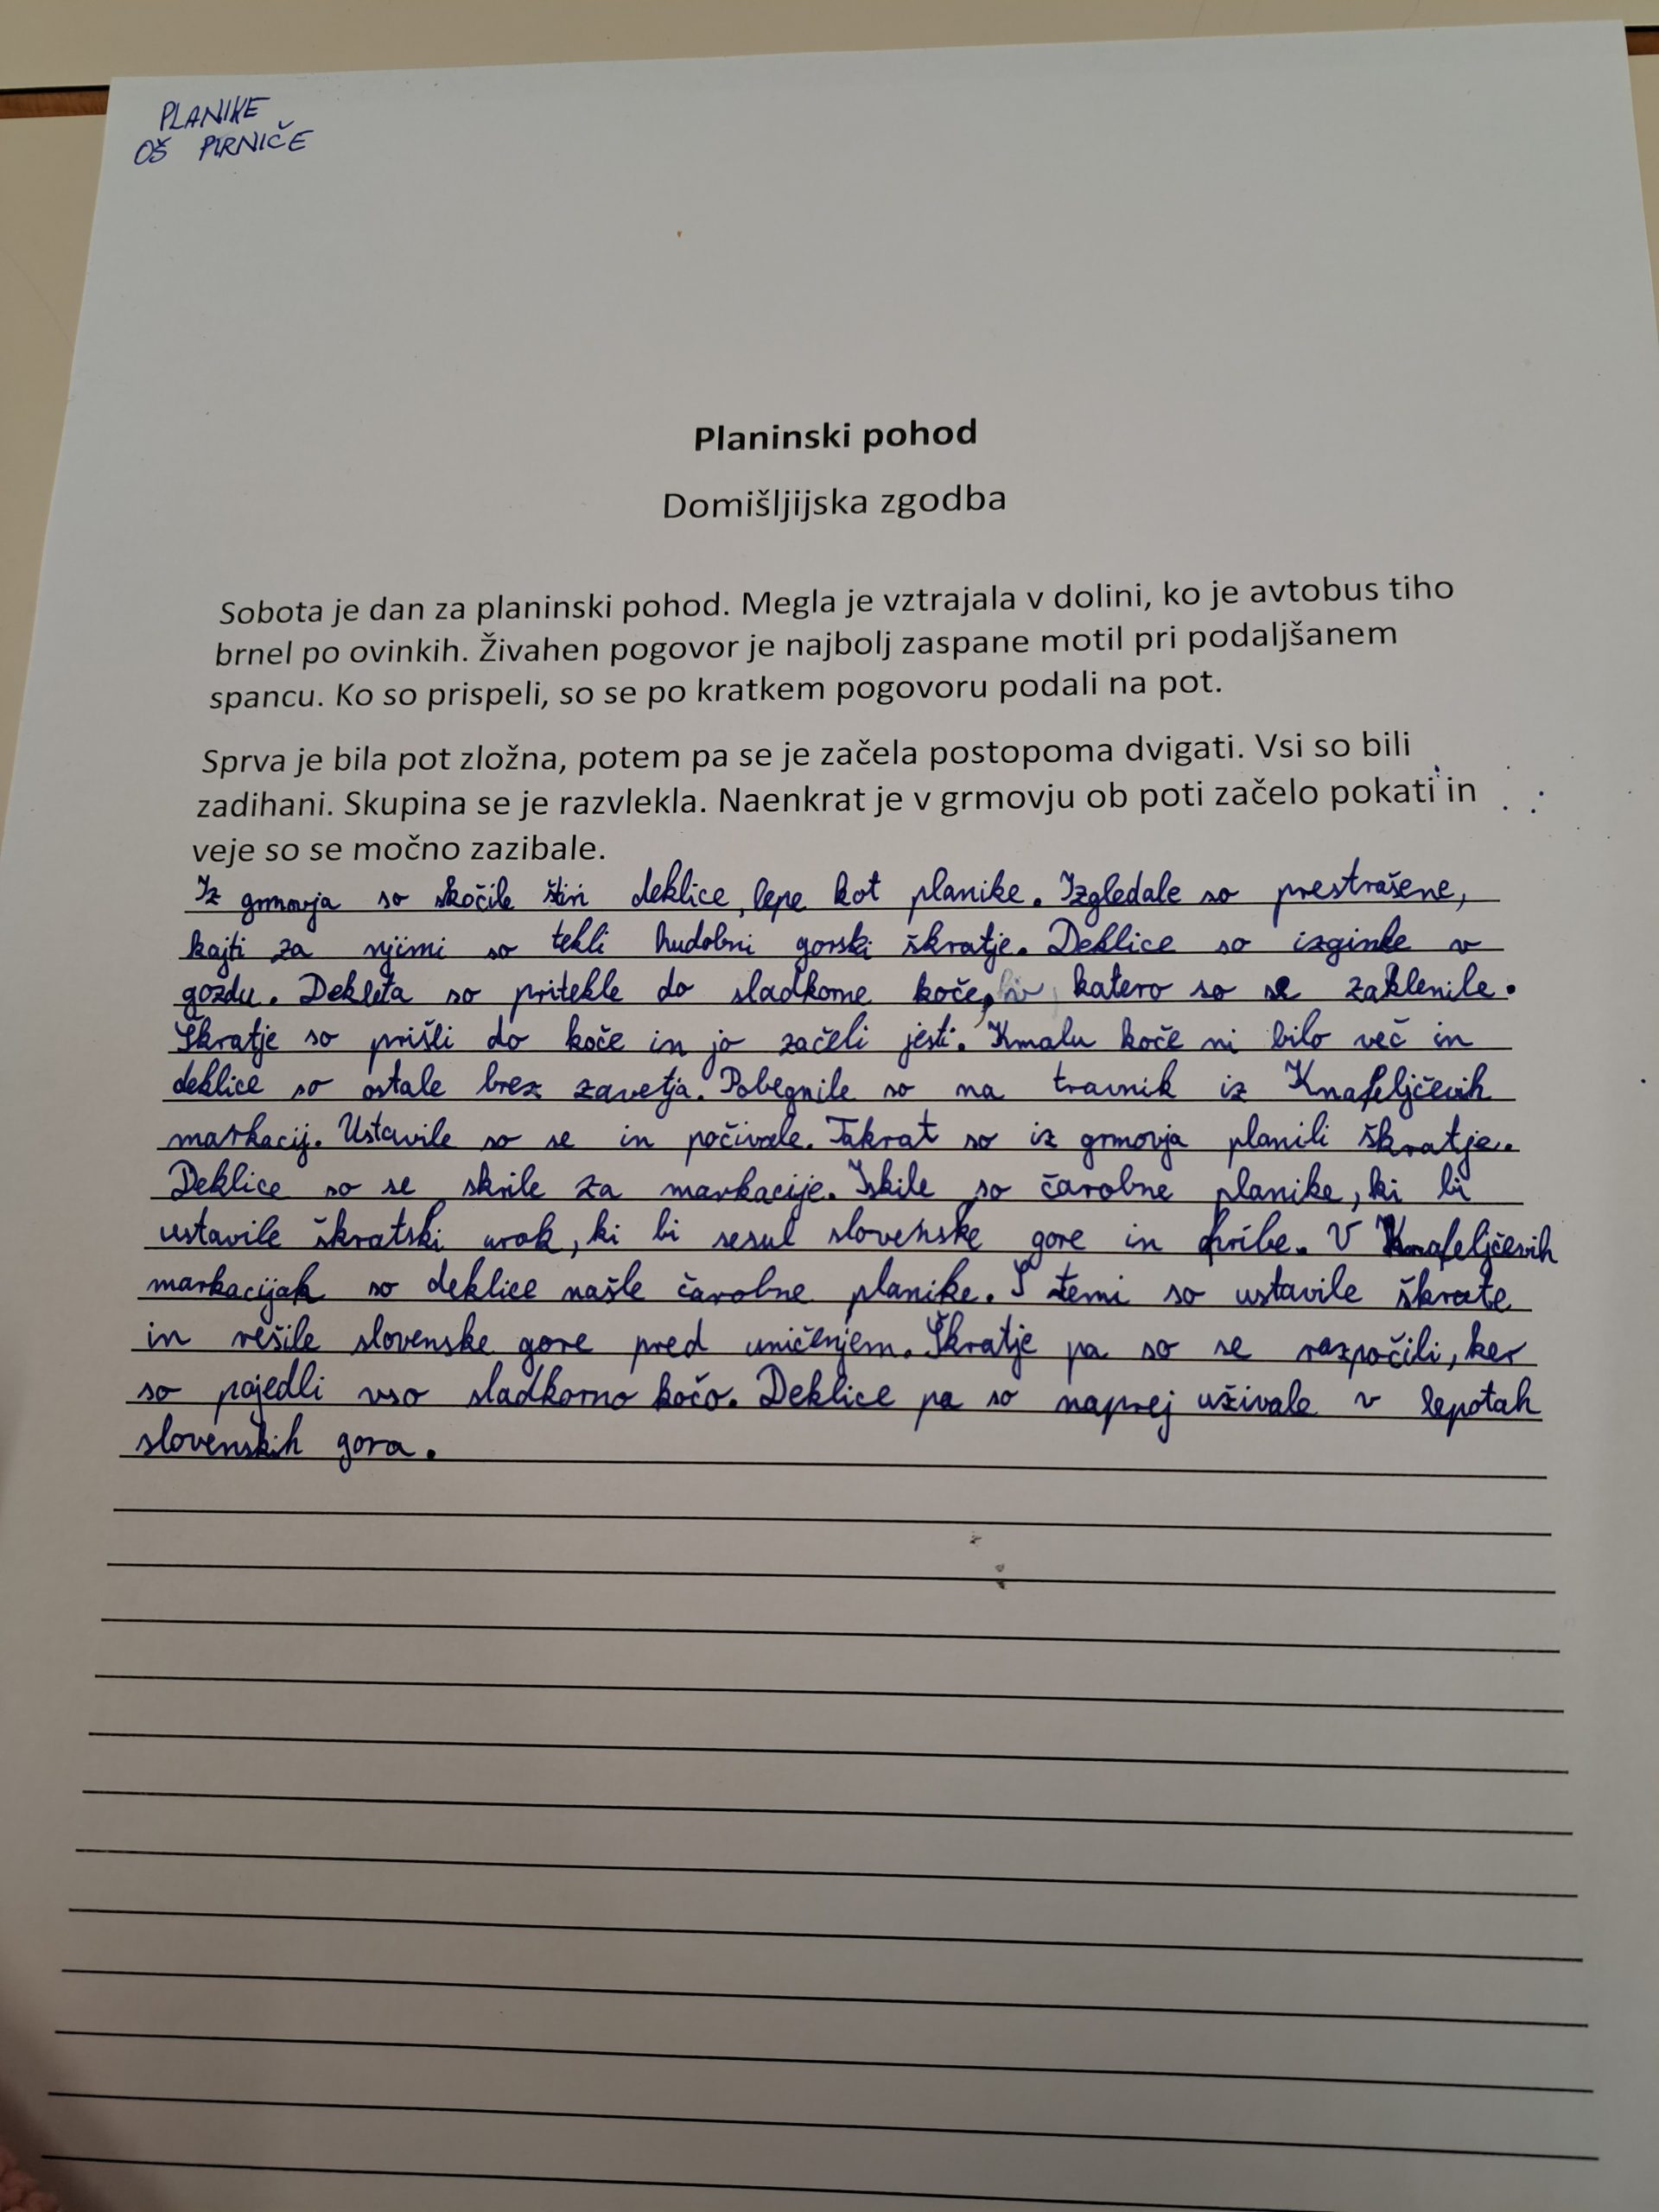 PLANIKE
OŠ PIRNIČE
Planinski pohod
Domišljijska zgodba
Sobota je dan za planinski pohod. Megla je vztrajala v dolini, ko je avtobus tiho
brnel po ovinkih. Živahen pogovor je najbolj zaspane motil pri podaljšanem
spancu. Ko so prispeli, so se po kratkem pogovoru podali na pot.
Sprva je bila pot zložna, potem pa se je začela postopoma dvigati. Vsi so bili
zadihani. Skupina se je razvlekla. Naenkrat je v grmovju ob poti začelo pokati in
veje so se močno zazibale.
Iz grmovja so skočile štiri deklice, lepe kot planike. Izgledale so prestrašene,
kajti za njimi so tekli hudobni gorski škratje. Deklice so izginile v
gozdu. Dekleta so pritekle do sladkorne koče, katero so se zaklenile.
Škratje so prišli do koče in jo začeli jesti. Kmalu koče ni bilo več in
deklice so ostale brez zavetja. Pobegnile so na travnik iz Knafeljčevih
markacij. Ustavile so se in počivale. Takrat so iz grmovja planili škratje.
Deklice so se skrile za markacije. Iskile so čarobne planike, ki bi
ustavile škratski urok, ki bi sesul slovenske gore in hribe. V Knafeljčevih
markacijah so deklice našle čarobne planike. S temi so ustavile škrate
in rešile slovenske gore pred uničenjem. Škratje pa so se razpočili, ker
so pojedli vso sladkorno kočo. Deklice pa so naprej uživale v lepotah
slovenskih gora.